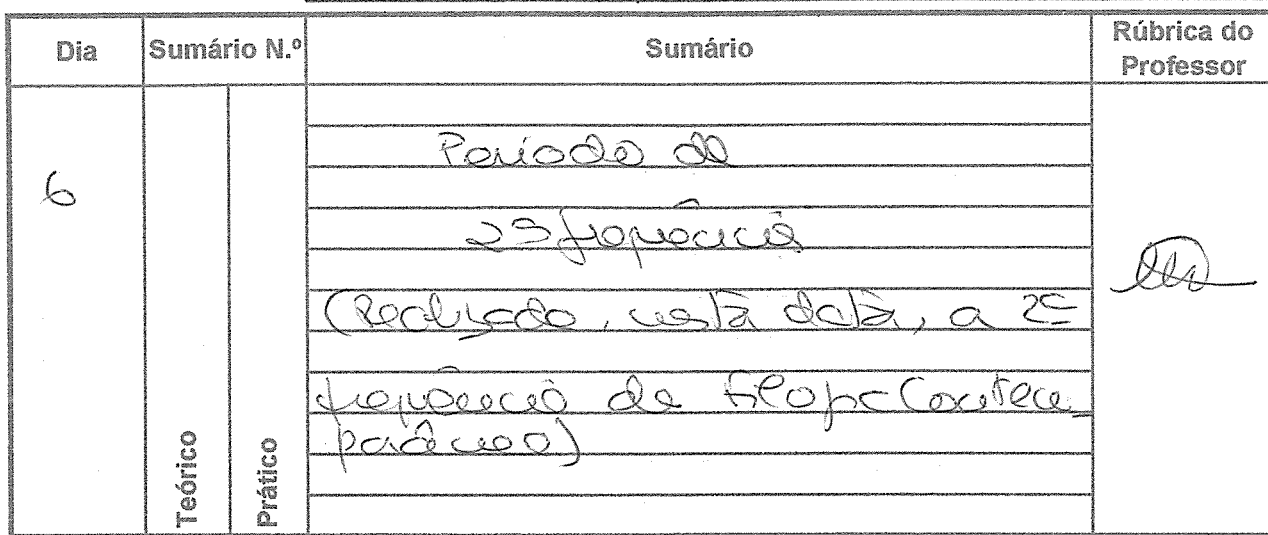 Dia
Sumário N.º
Sumário
Rúbrica do
Professor
6
Teórico
Prático
Período de
2ªs frequências
(Realizada, nesta data, a 2ª
frequência de Contem
porâneo)